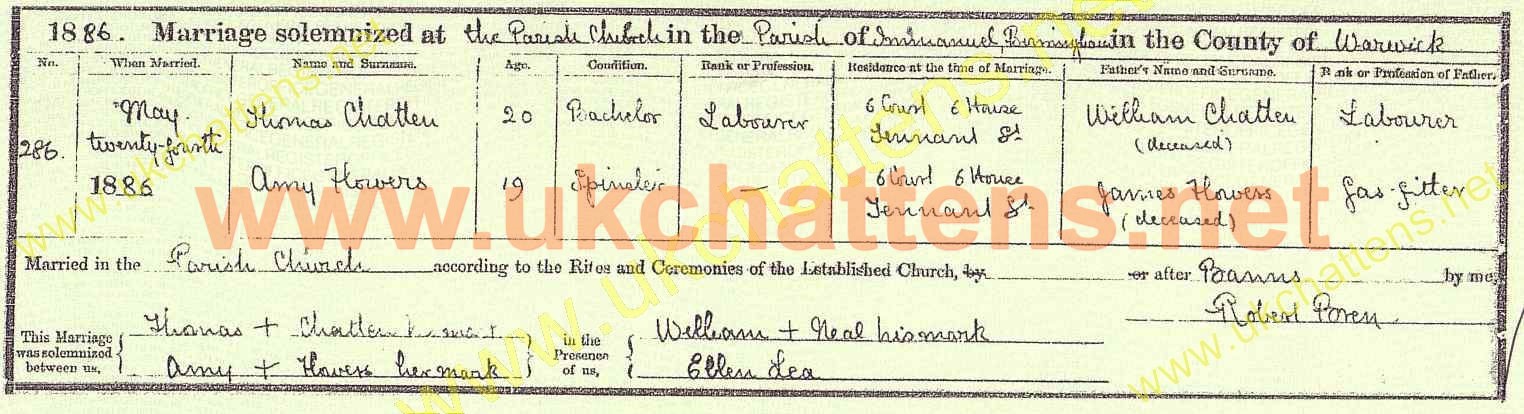 1886. Marriage solemnized at the Parish Church in the Parish of Immanuel, Birmingham in the County of Warwick
No. When Married. Name and Surname. Age. Condition. Rank or Profession. Residence at the time of Marriage. Father's Name and Surname. Rank or Profession of Father.
286. May twenty-fourth 1886 Thomas Chatten 20 Bachelor Labourer 6 Court 6 House Tennant St William Chatten (deceased) Labourer
Amy Flowers 19 Spinster — 6 Court 6 House Tennant St James Flowers (deceased) Gas-fitter
www.ukchattens.net
Married in the Parish Church according to the Rites and Ceremonies of the Established Church, by or after Banns by me,
Robert Poren
This Marriage was solemnized between us, Thomas + Chatten his mark in the Presence of us, William + Neal his mark
Amy + Flowers her mark Ellen Lea
www.ukchattens.net
www.ukchattens.net
www.ukchattens.net